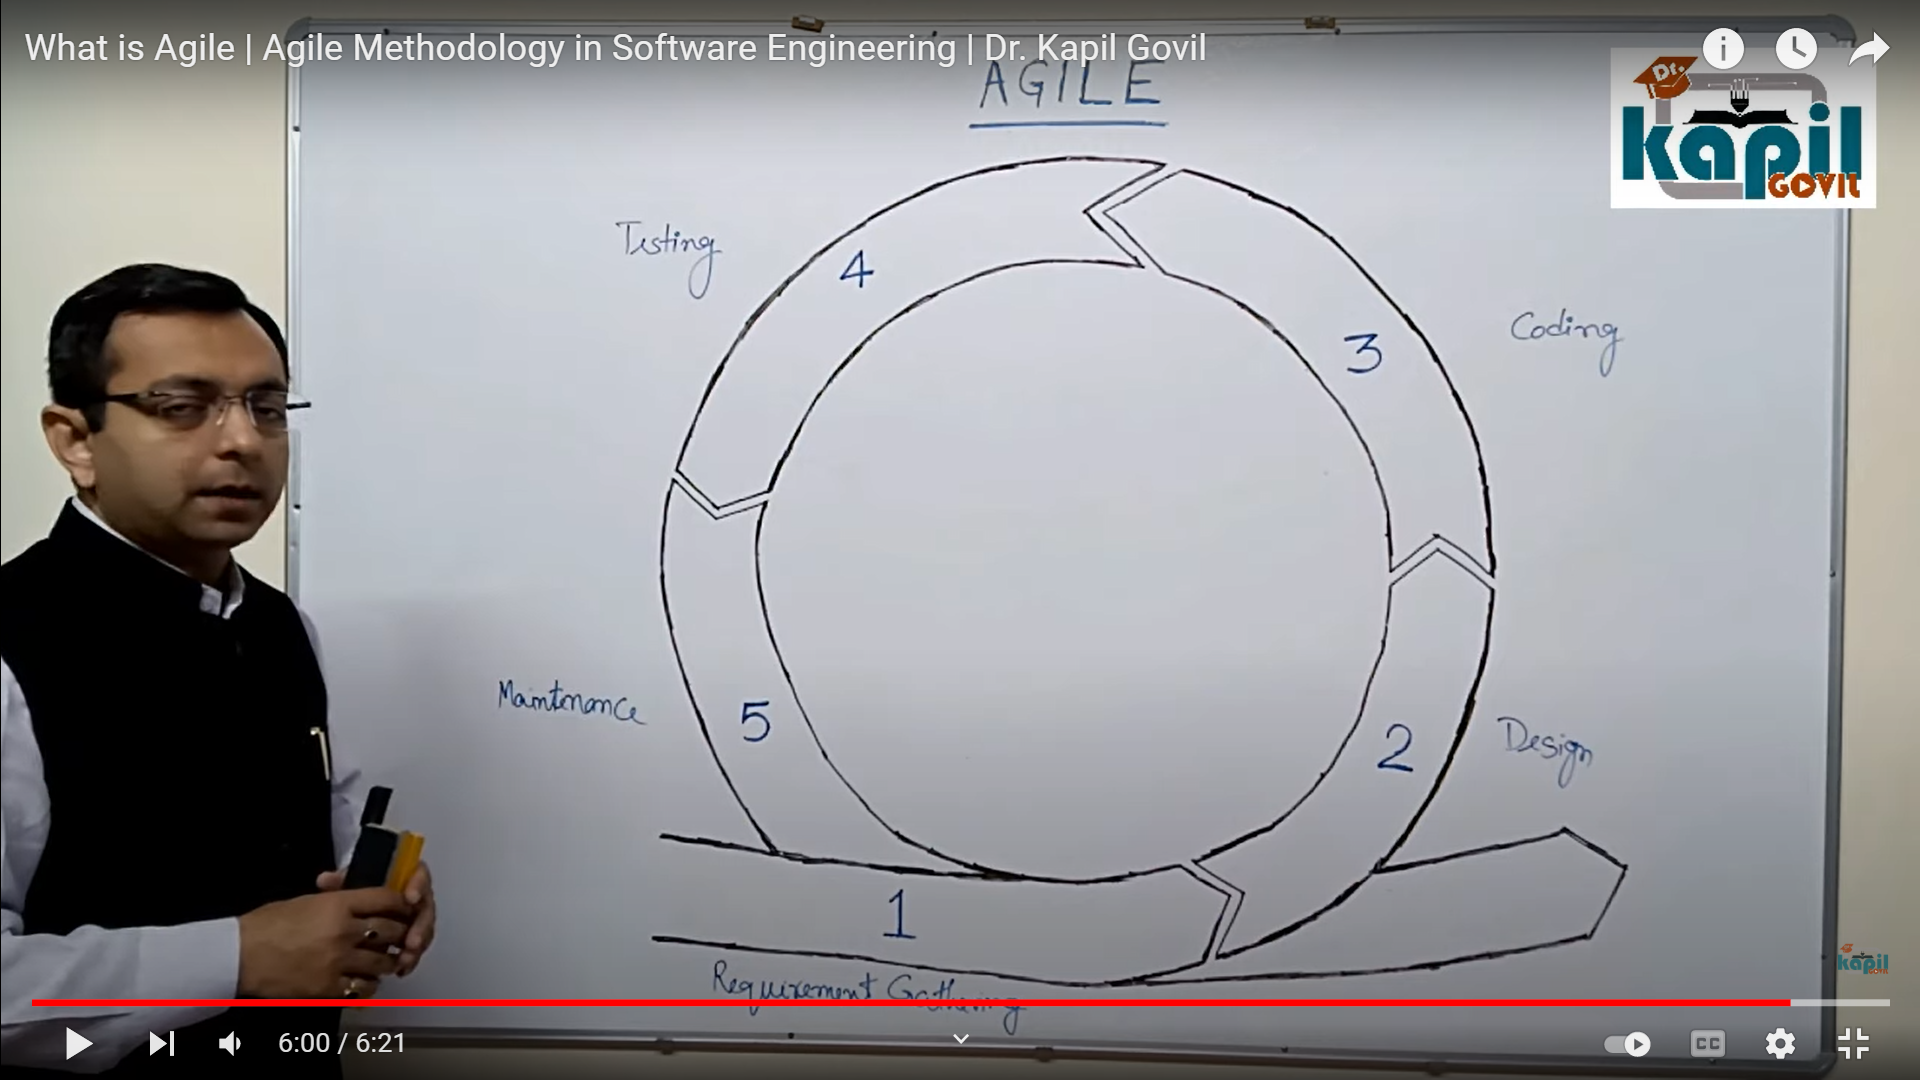 What is Agile | Agile Methodology in Software Engineering | Dr. Kapil Govil
AGILE
Dr.
kapil
GOVIL
Testing
4
3
Coding
Maintenance
5
2
Design
1
Requirement Gathering
kapil
6:00 / 6:21
CC